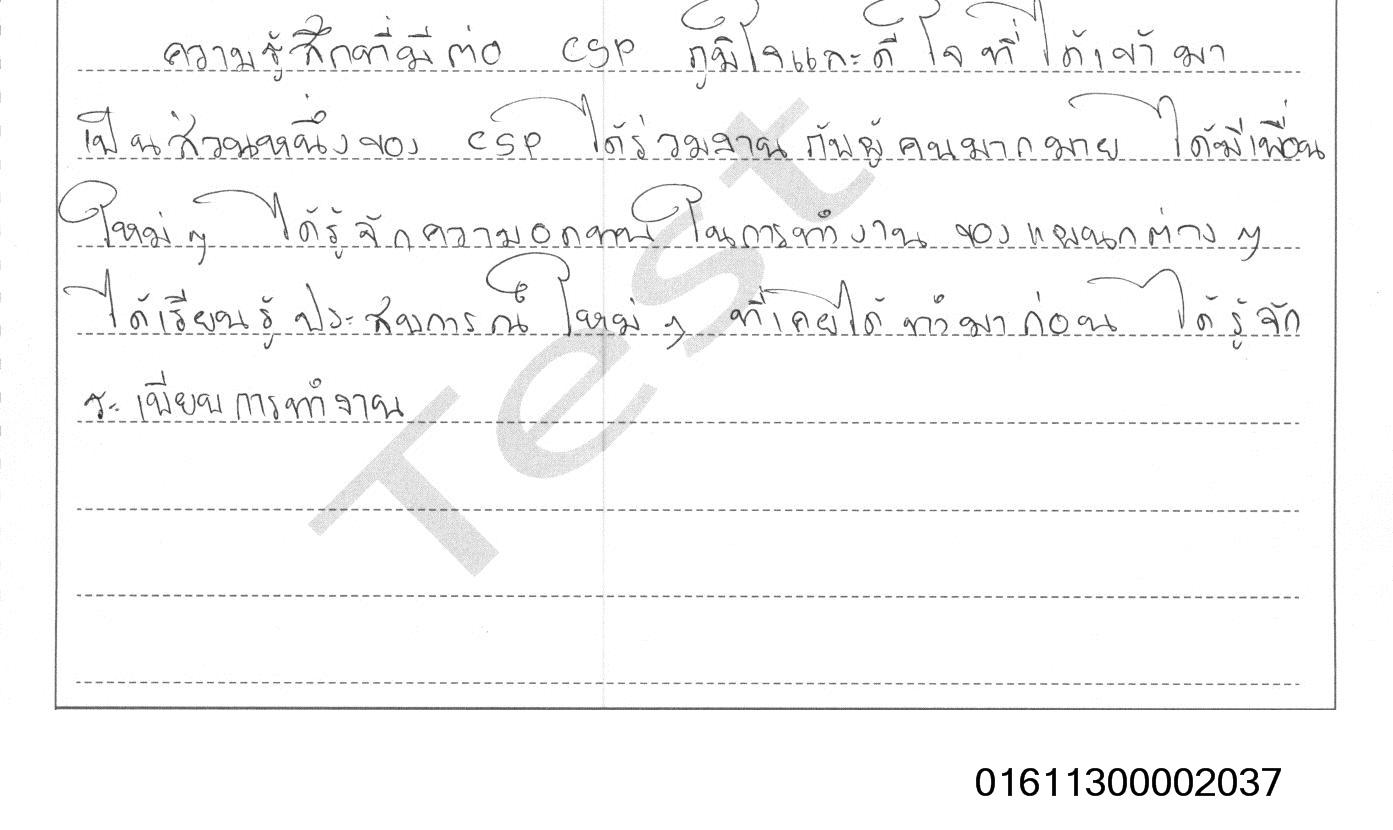 ความรู้สึกที่มีต่อ CSP ภูมิใจและดีใจที่ได้เข้ามา
เป็นส่วนหนึ่งของ CSP ได้ร่วมงานกับผู้คนมากมาย ได้มีเพื่อน
ใหม่ๆ ได้รู้จักความอดทนในการทำงาน ของแผนกต่างๆ
ได้เรียนรู้ประสบการณ์ใหม่ๆ ที่เคยได้ทำมาก่อน ได้รู้จัก
ระเบียบการทำงาน
Test
01611300002037